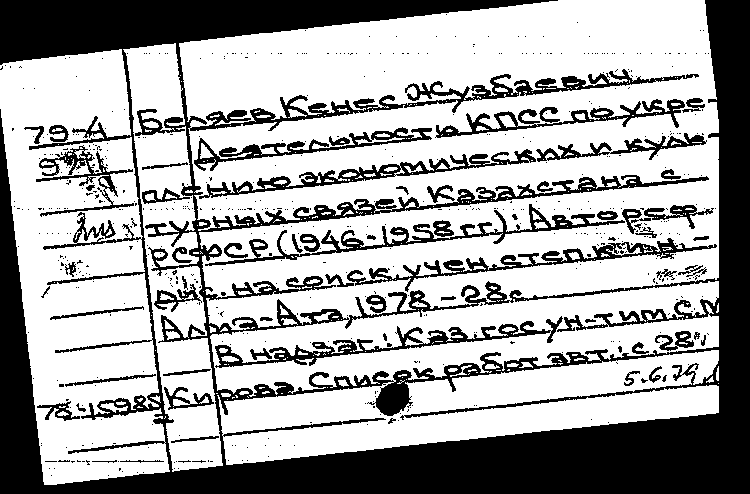 79-А Беляев, Кенес Жузбаевич
Деятельность КПСС по укре-
плению экономических и куль-
турных связей Казахстана с
РСФСР. (1946-1958 гг.): Автореф.
Дис. на соиск. учен. степ. к. и. н. -
Алма-Ата, 1978. - 28 с.
В надзаг.: Каз. гос. ун-т им. С. М.
78-15985 Кирова. Список работ авт.: с. 28.
5.6.79